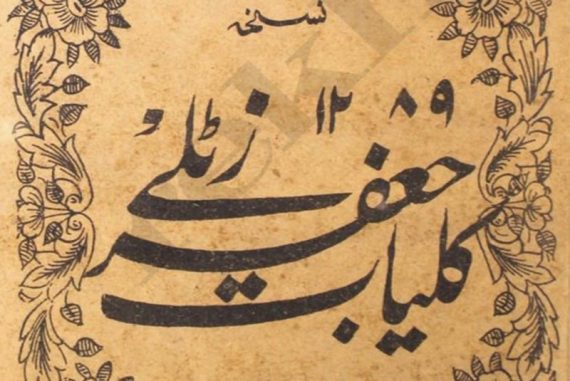 نسخہ
۱۲۸۹
کلیات جعفر زٹلی